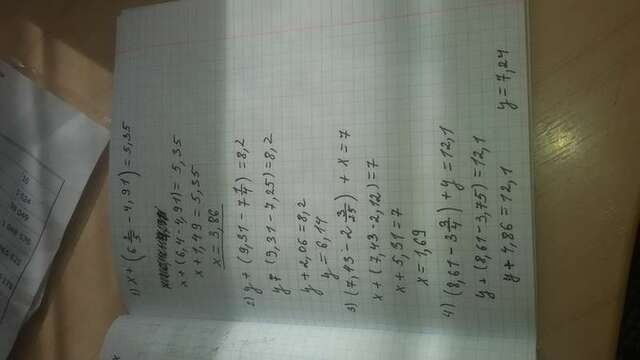 1) x + (6 2/5 - 4,91) = 5,35
x + (6,4 - 4,91) = 5,35
x + 1,49 = 5,35
x = 3,86
2) y + (9,31 - 7 1/4) = 8,2
y + (9,31 - 7,25) = 8,2
y + 2,06 = 8,2
y = 6,14
3) (7,43 - 2 3/25) + x = 7
x + (7,43 - 2,12) = 7
x + 5,31 = 7
x = 1,69
4) (8,61 - 3 3/4) + y = 12,1
y + (8,61 - 3,75) = 12,1
y + 4,86 = 12,1
y = 7,24